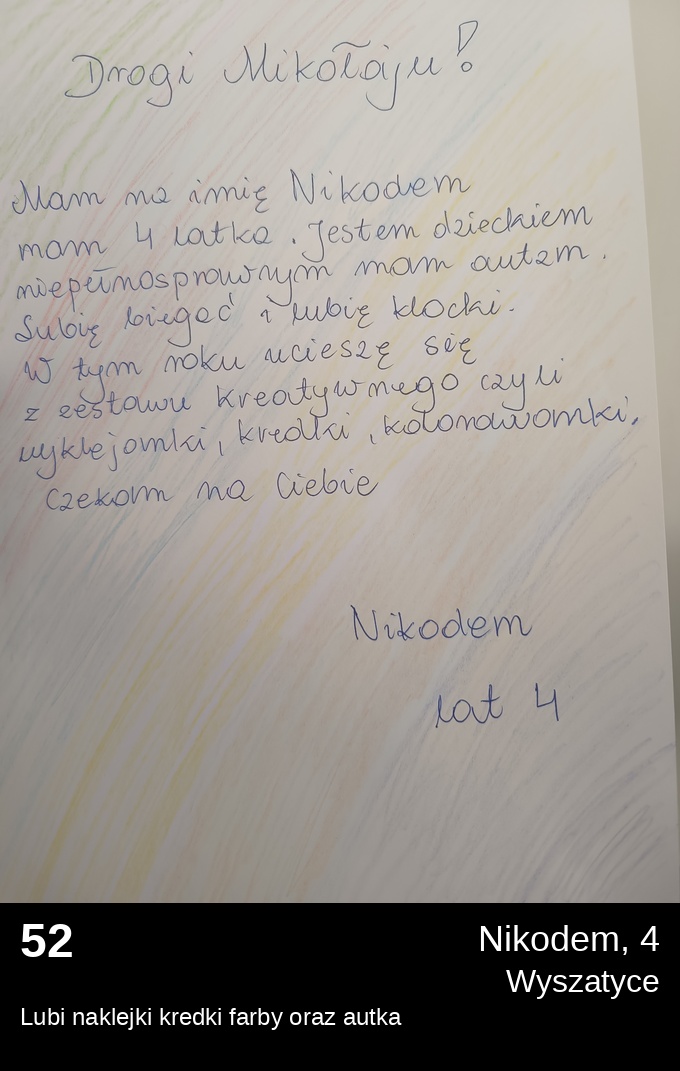 Drogi Mikołaju!
Mam na imię Nikodem
mam 4 latka. Jestem dzieckiem
niepełnosprawnym mam autzm.
Lubię biegać i lubię klocki.
W tym roku ucieszę się
z zestawu kreatywnego czyli
wyklejanki, kredki, kolorowanki.
Czekam na Ciebie
Nikodem
lat 4
52
Nikodem, 4
Wyszatyce
Lubi naklejki kredki farby oraz autka